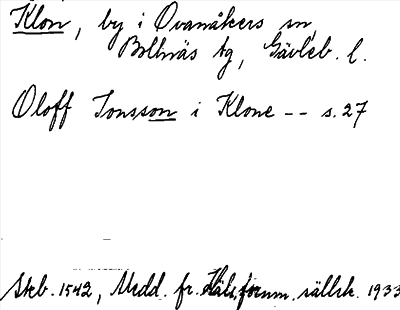 Klon, by i Ovanåkers sn,
Bollnäs tg, Gävleb. l.
Oloff Jonsson i Klone -- s. 27
Skb. 1542, Medd. fr. Häls. fornm. sällsk. 1933